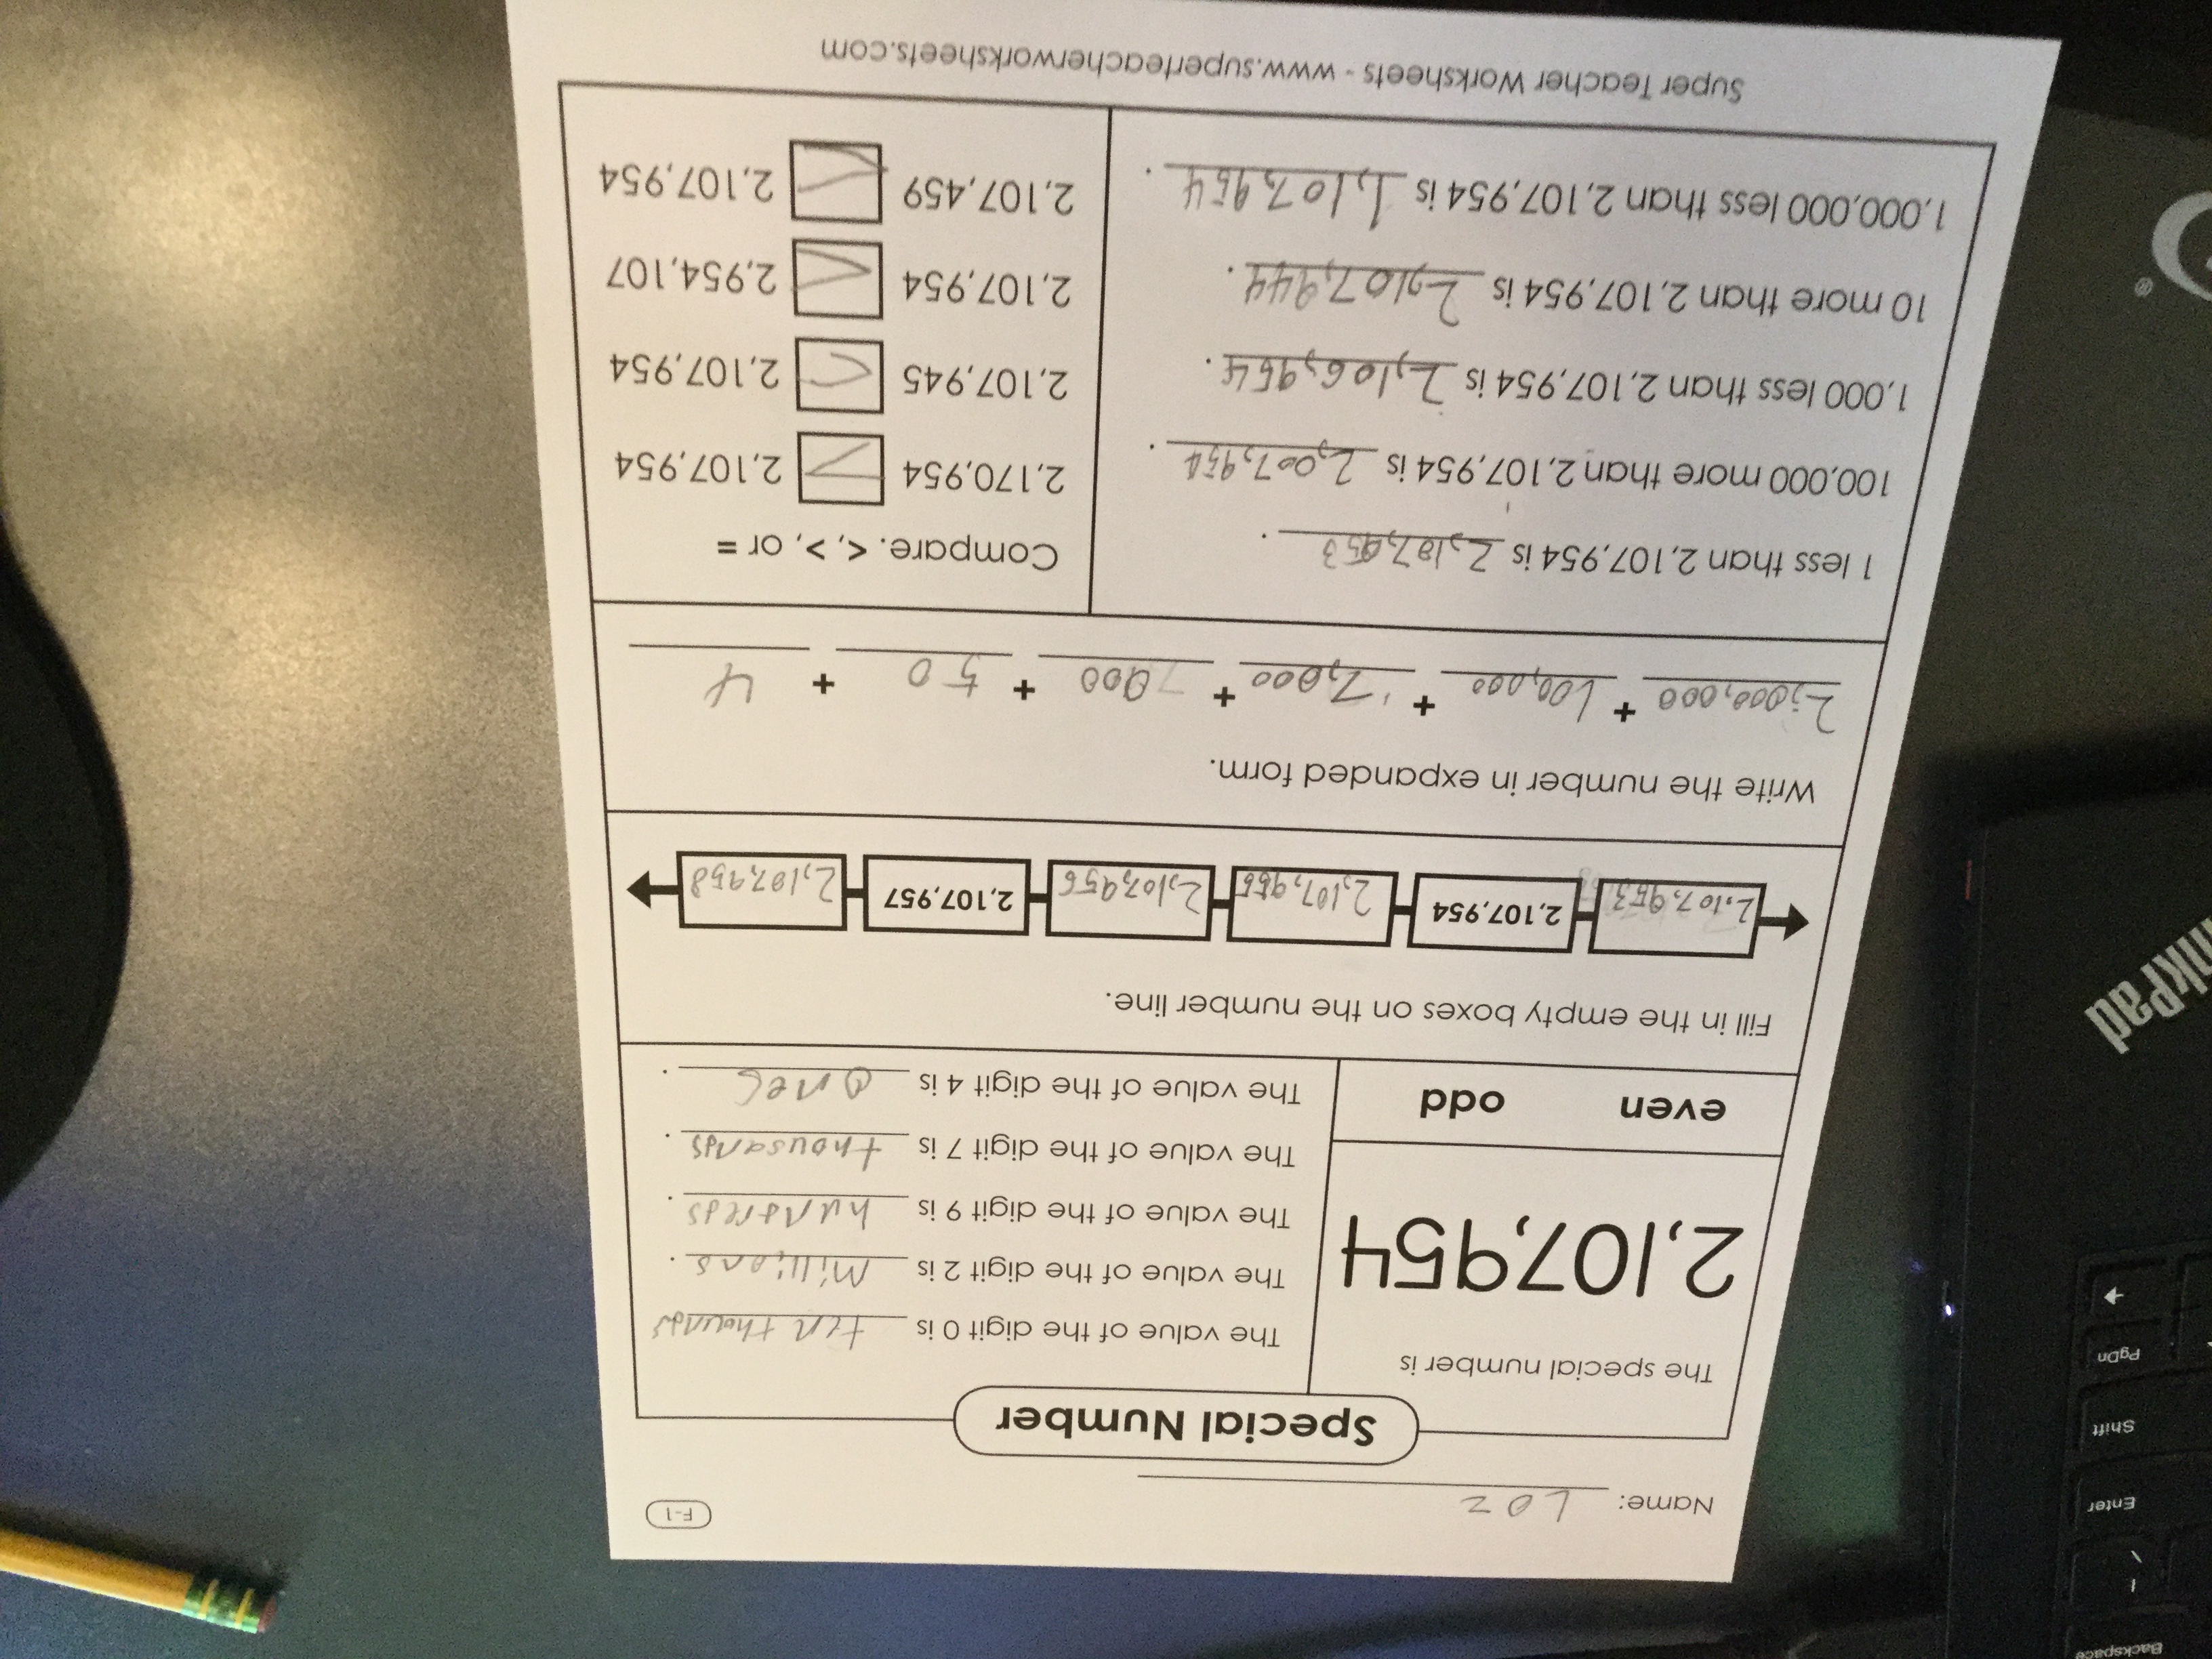 Backspace
Enter
Shift
PgDn
inkPad
®
Name: LOZ
F-1
Special Number
The special number is
2,107,954
even odd
The value of the digit 0 is ten thounds
The value of the digit 2 is Millions.
The value of the digit 9 is hundreds.
The value of the digit 7 is thousands.
The value of the digit 4 is ones.
Fill in the empty boxes on the number line.
2,107,953 2,107,954 2,107,955 2,107,956 2,107,957 2,107,958
Write the number in expanded form.
2,000,000 + 100,000 + 7,000 + 900 + 50 + 4
1 less than 2,107,954 is 2,107,953.
100,000 more than 2,107,954 is 2,007,954.
1,000 less than 2,107,954 is 2,106,954.
10 more than 2,107,954 is 2,107,944.
1,000,000 less than 2,107,954 is 1,107,954.
Compare. <, >, or =
2,170,954 > 2,107,954
2,107,945 < 2,107,954
2,107,954 < 2,954,107
2,107,459 < 2,107,954
Super Teacher Worksheets - www.superteacherworksheets.com